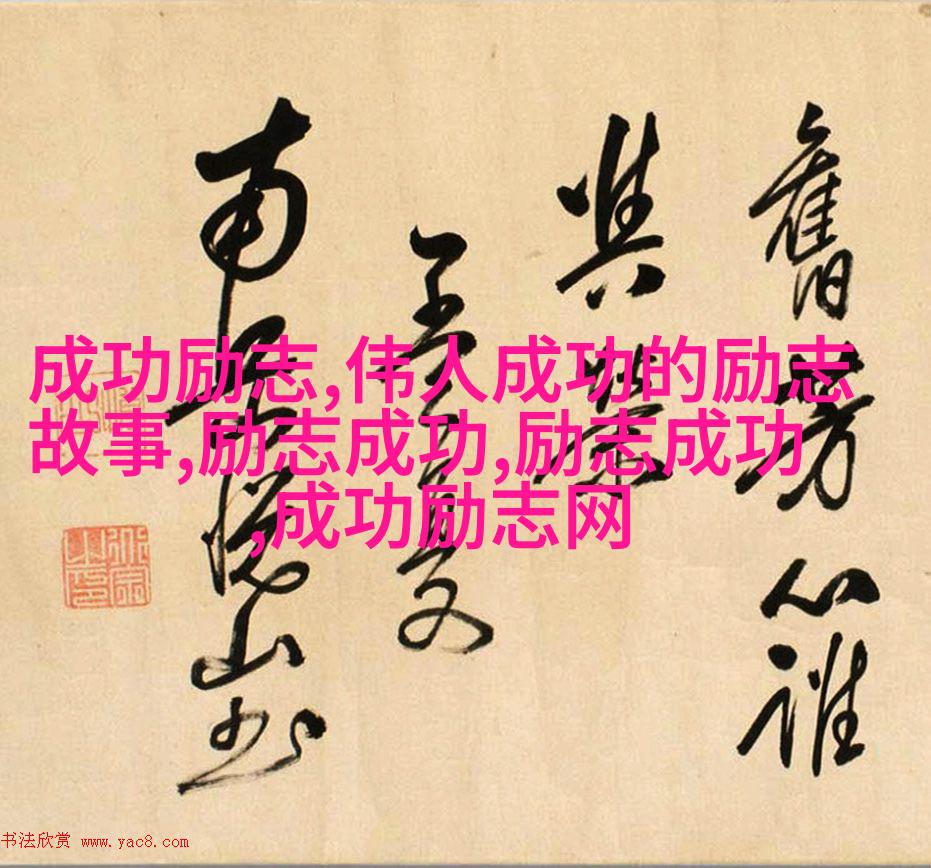 舊 心誰
與
南岳悦山书
成功励志,伟人成功的励志
故事,励志成功,励志成功
,成功励志网
书法欣赏 www.yac8.com